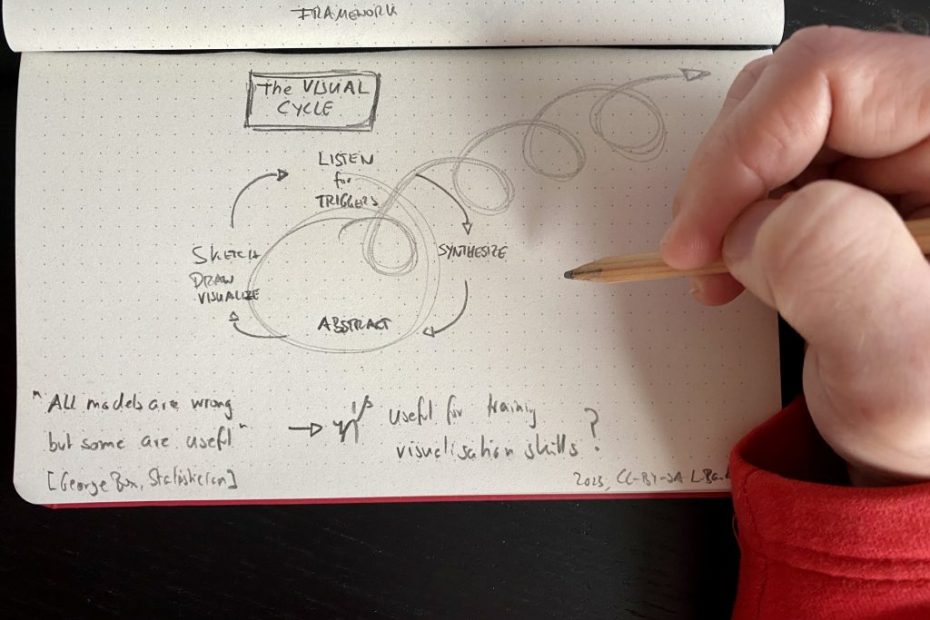 FRAMEWORK
The VISUAL
CYCLE
LISTEN
for
TRIGGERS
SYNTHESIZE
ABSTRACT
SKETCH
DRAW
VISUALIZE
"All models are wrong
but some are useful"
[George Box, Statistician]
useful for training
visualisation skills?
2025, CC-BY-SA